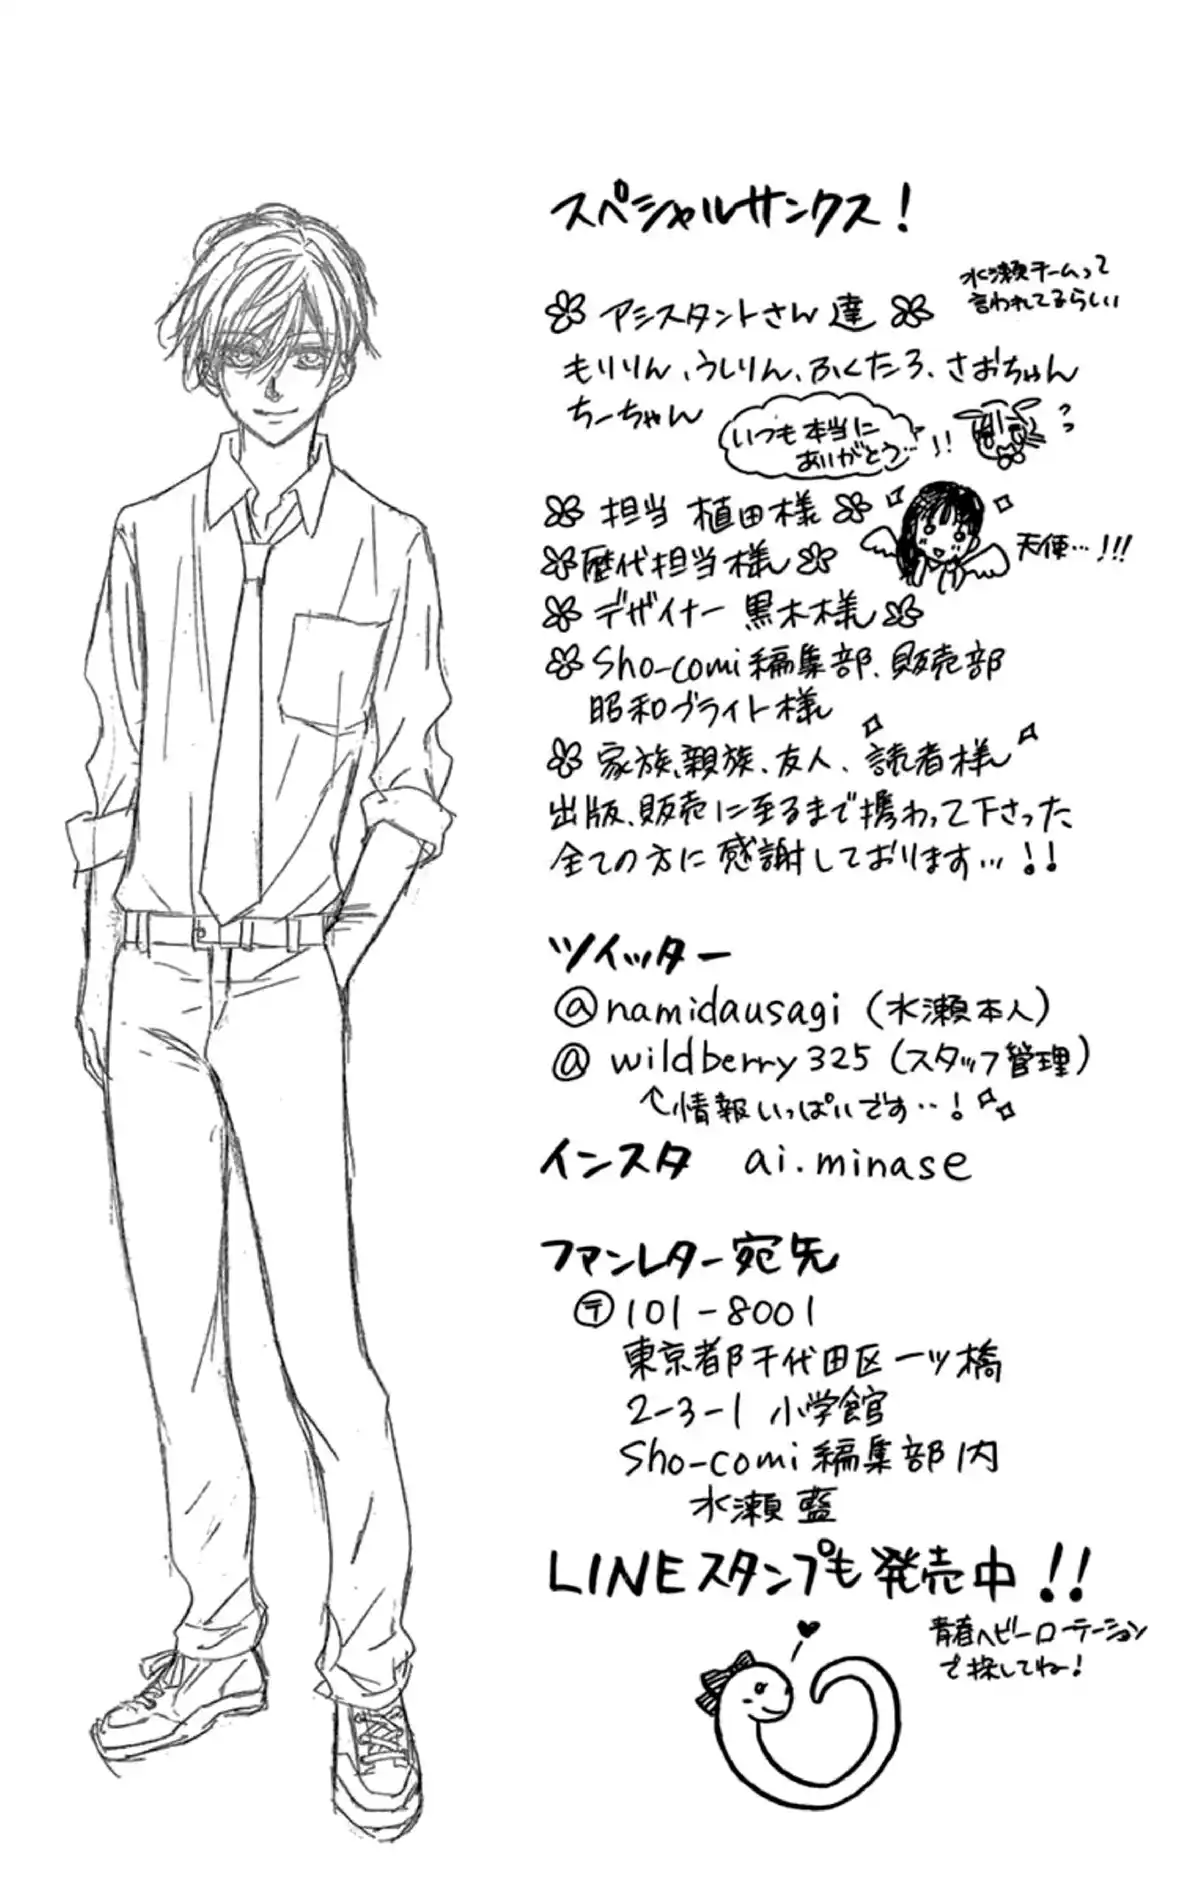 スペシャルサンクス!
水瀬チームって
言われてるらしい
アシスタントさん達
もりりん、うしりん、ふくたろ、さおちゃん
ちーちゃん
いつも本当に
ありがとう…!!
担当 植田様
天使…!!!
歴代担当様
デザイナー 黒木様
Sho-comi編集部、販売部
昭和ブライト様
家族、親族、友人、読者様
出版、販売に至るまで携わって下さった
全ての方に感謝しております…!!
ツイッター
@namidausagi (水瀬本人)
@wildberry325 (スタッフ管理)
↑情報いっぱいです…!
インスタ ai.minase
ファンレター宛先
〒101-8001
東京都千代田区一ツ橋
2-3-1 小学館
Sho-comi編集部内
水瀬藍
LINEスタンプも発売中!!
青春ヘビーローテーション
で探してね!